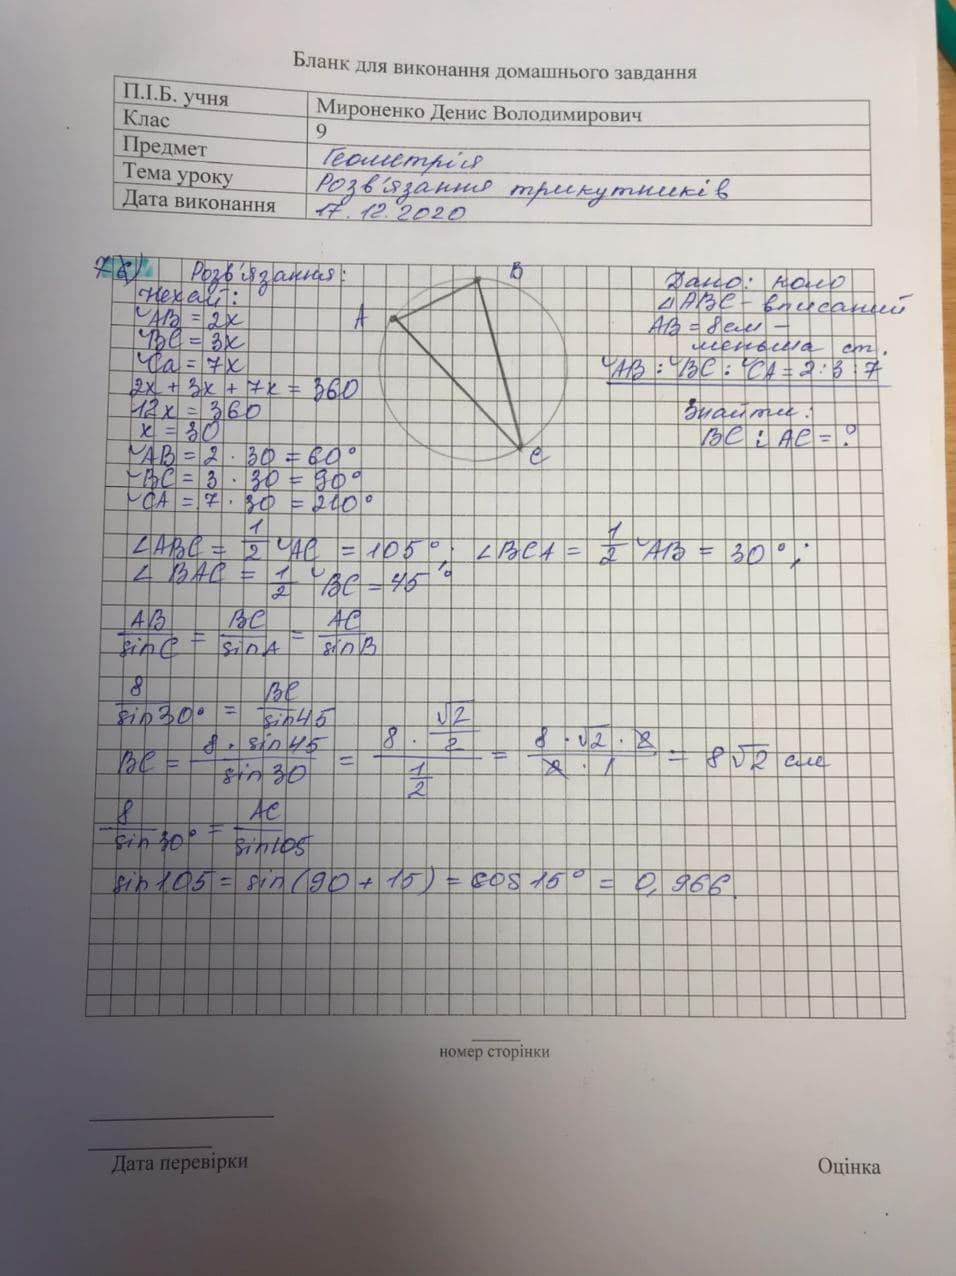 Бланк для виконання домашнього завдання
П.І.Б. учня Мироненко Денис Володимирович
Клас 9
Предмет Геометрія
Тема уроку Розв'язання трикутників
Дата виконання 17.12.2020
Розв'язання:
Нехай:
◡AB = 2x
◡BC = 3x
◡Ca = 7x
2x + 3x + 7x = 360
12x = 360
x = 30
◡AB = 2 · 30 = 60°
◡BC = 3 · 30 = 90°
◡CA = 7 · 30 = 210°
A
B
C
Дано: коло
∠ABC - вписаний
AB = 8см -
меньша ст.
◡AB : ◡BC : ◡CA = 2 : 3 : 7
Знайти:
BC і AC = ?
∠ABC = 1/2 ◡AC = 105°; ∠BCA = 1/2 ◡AB = 30°;
∠BAC = 1/2 ◡BC = 45°
AB/sinC = BC/sinA = AC/sinB
8/sin30° = BC/sin45
BC = 8 · sin45/sin30 = 8 · √2/2 / 1/2 = 8 · √2 · 2/2 · 1 = 8√2 см
8/sin30° = AC/sin105
sin105 = sin(90 + 15) = cos15° = 0,966.
номер сторінки
Дата перевірки
Оцінка